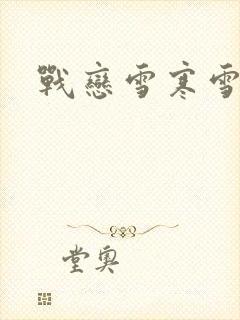 戰戀雪寒雪
堂奧